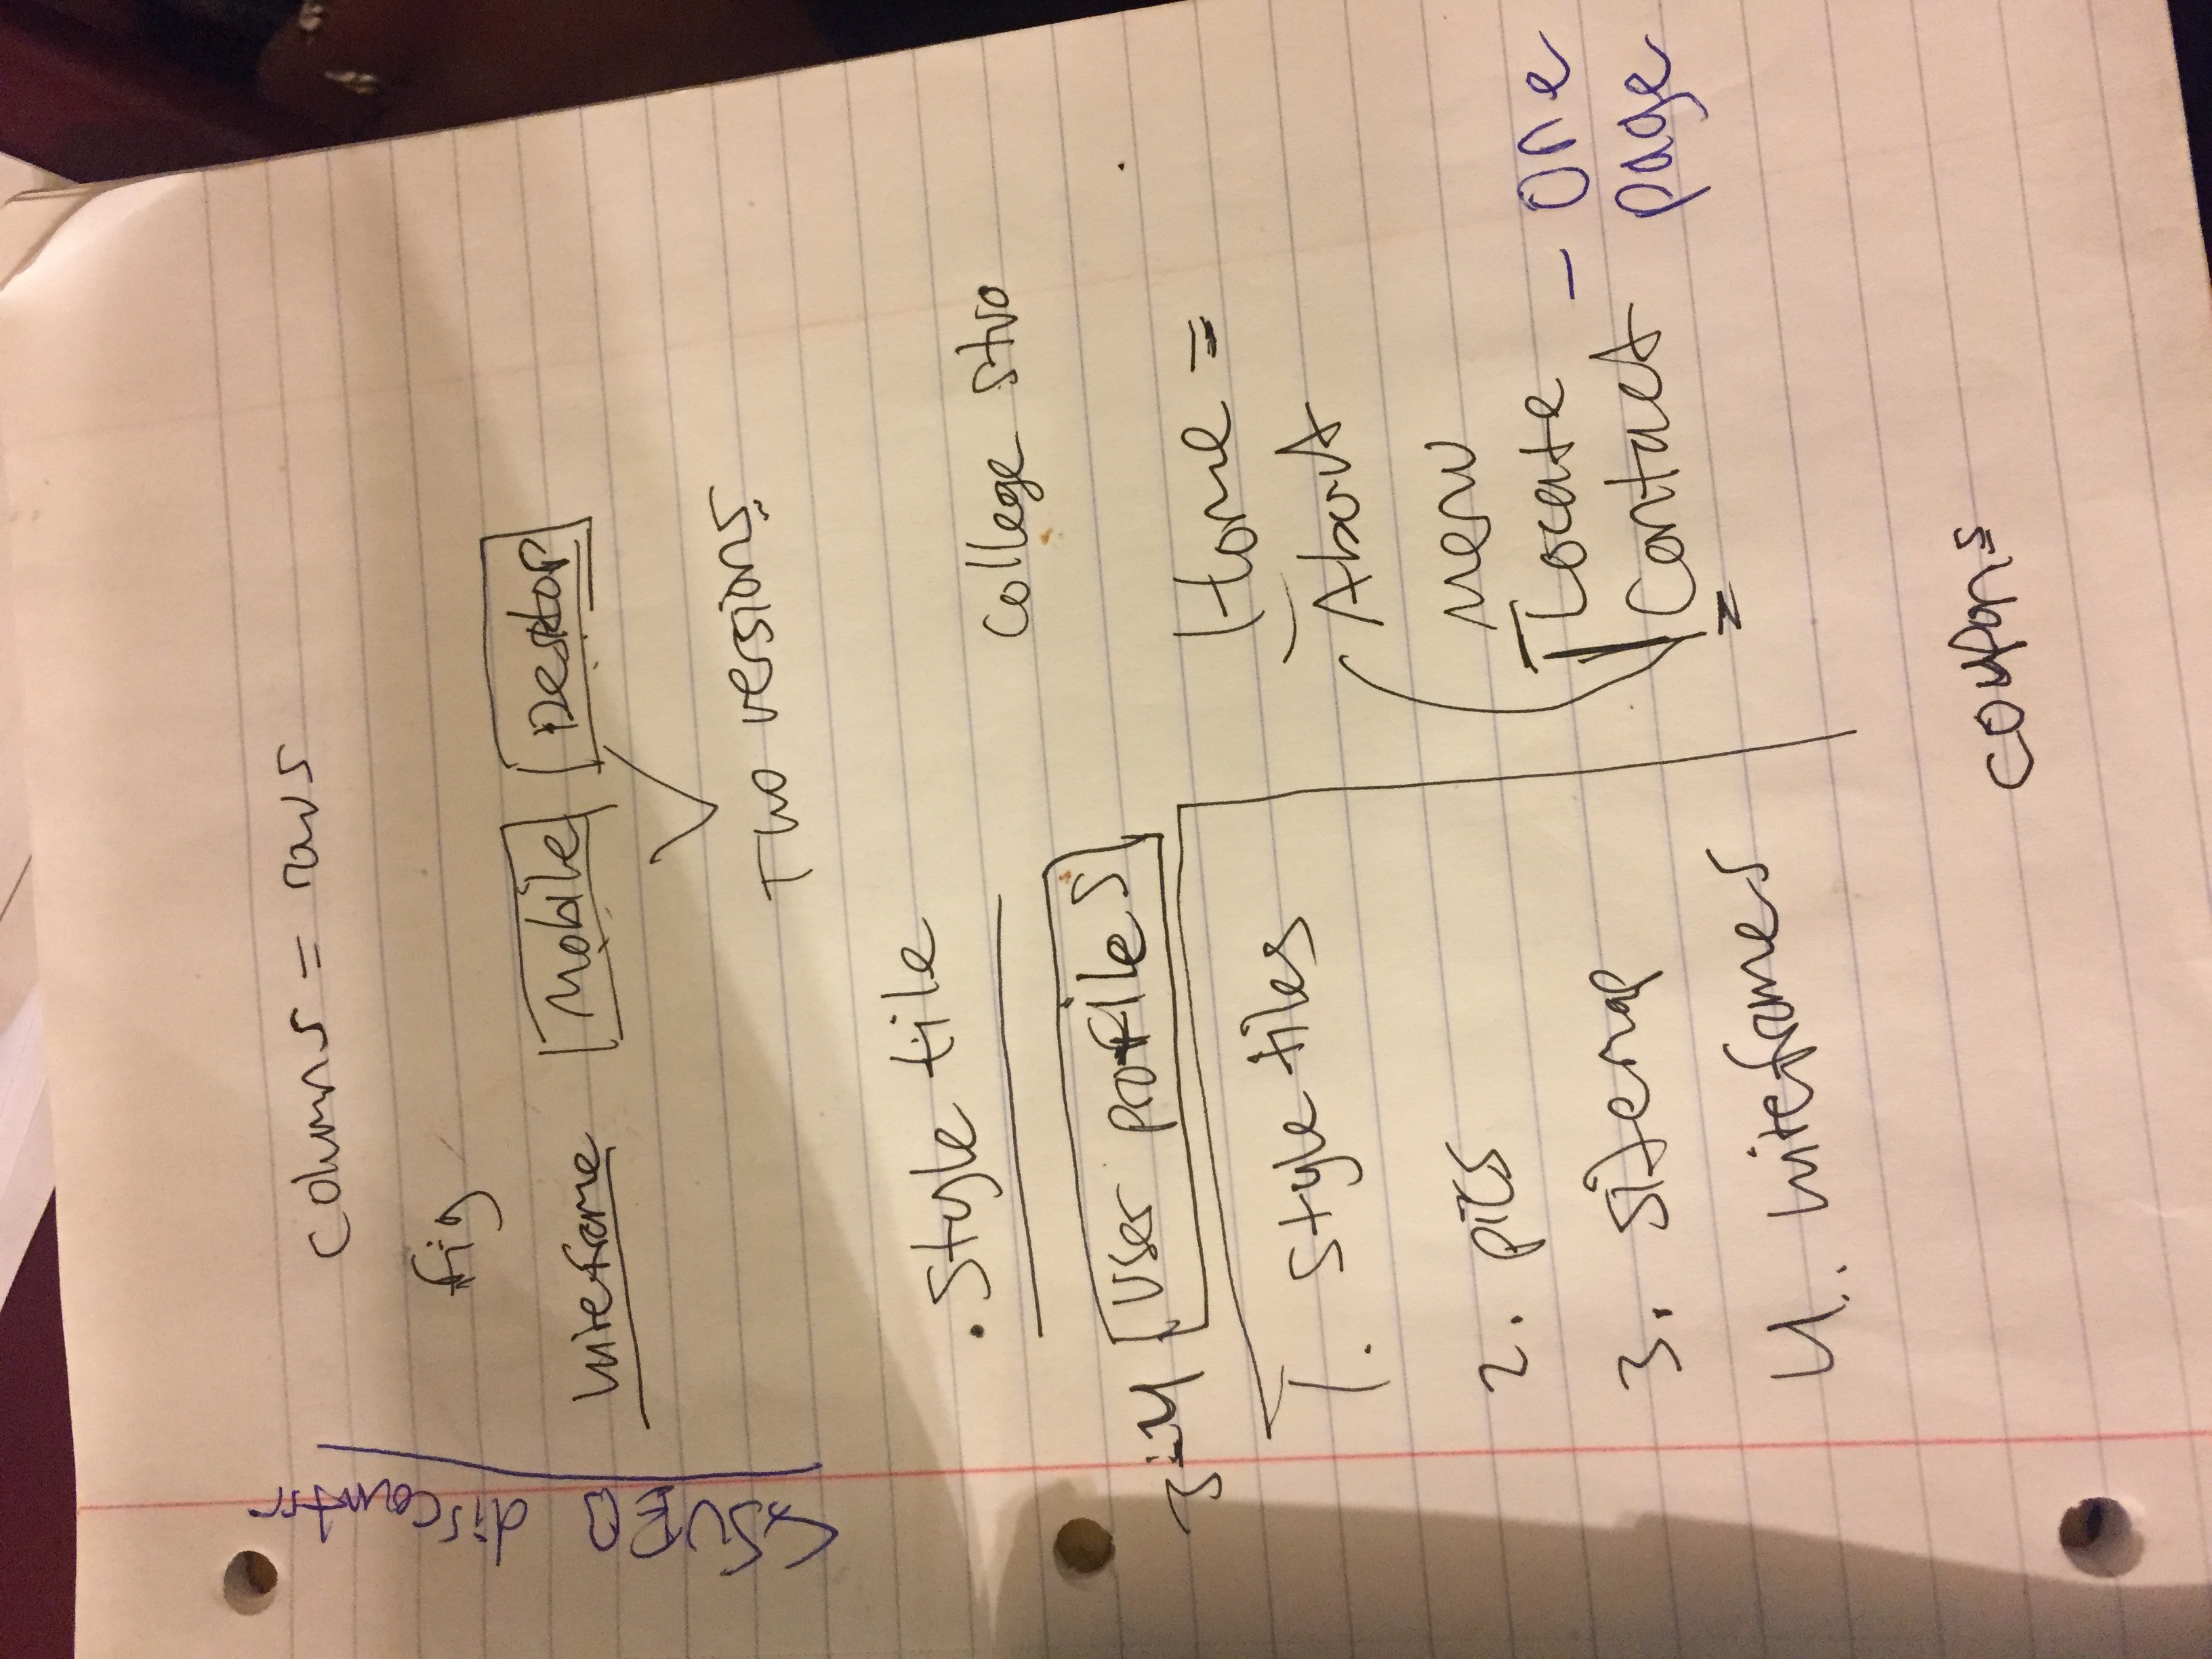 columns = rows
fig
wireframe Mobile Desktop
Two versions
. Style tile
college stuo
3-4 User profiles
1. Style tiles
2. pics
3. sitemap
4. wireframes
Home =
About
menu
Locate - one
Contact page
coupons
discounts